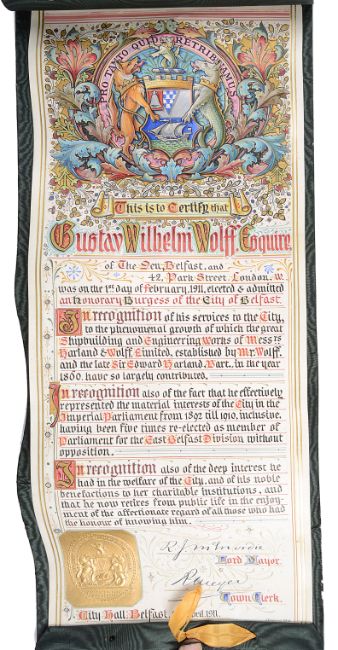 PRO TANTO QUID RETRIBUAMUS
This is to Certify that
Gustav Wilhelm Wolff Esquire,
of The Den, Belfast, and
42, Park Street, London, W.
was on the 1st day of February, 1911, elected & admitted
an Honorary Burgess of the City of Belfast.
In recognition of his services to the City,
to the phenomenal growth of which the great
Shipbuilding and Engineering Works of Messrs
Harland & Wolff, Limited, established by Mr. Wolff,
and the late Sir Edward Harland, Bart., in the year
1860, have so largely contributed.
In recognition also of the fact that he effectively
represented the material interests of the City in the
Imperial Parliament from 1892 till 1910, inclusive,
having been five times re-elected as member of
Parliament for the East Belfast Division without
opposition.
In recognition also of the deep interest he
had in the welfare of the City, and of his noble
benefactions to her charitable institutions, and
that he now retires from public life in the enjoy-
ment of the affectionate regard of all those who had
the honour of knowing him.
Lord Mayor.
Town Clerk.
City Hall, Belfast, April, 1911.